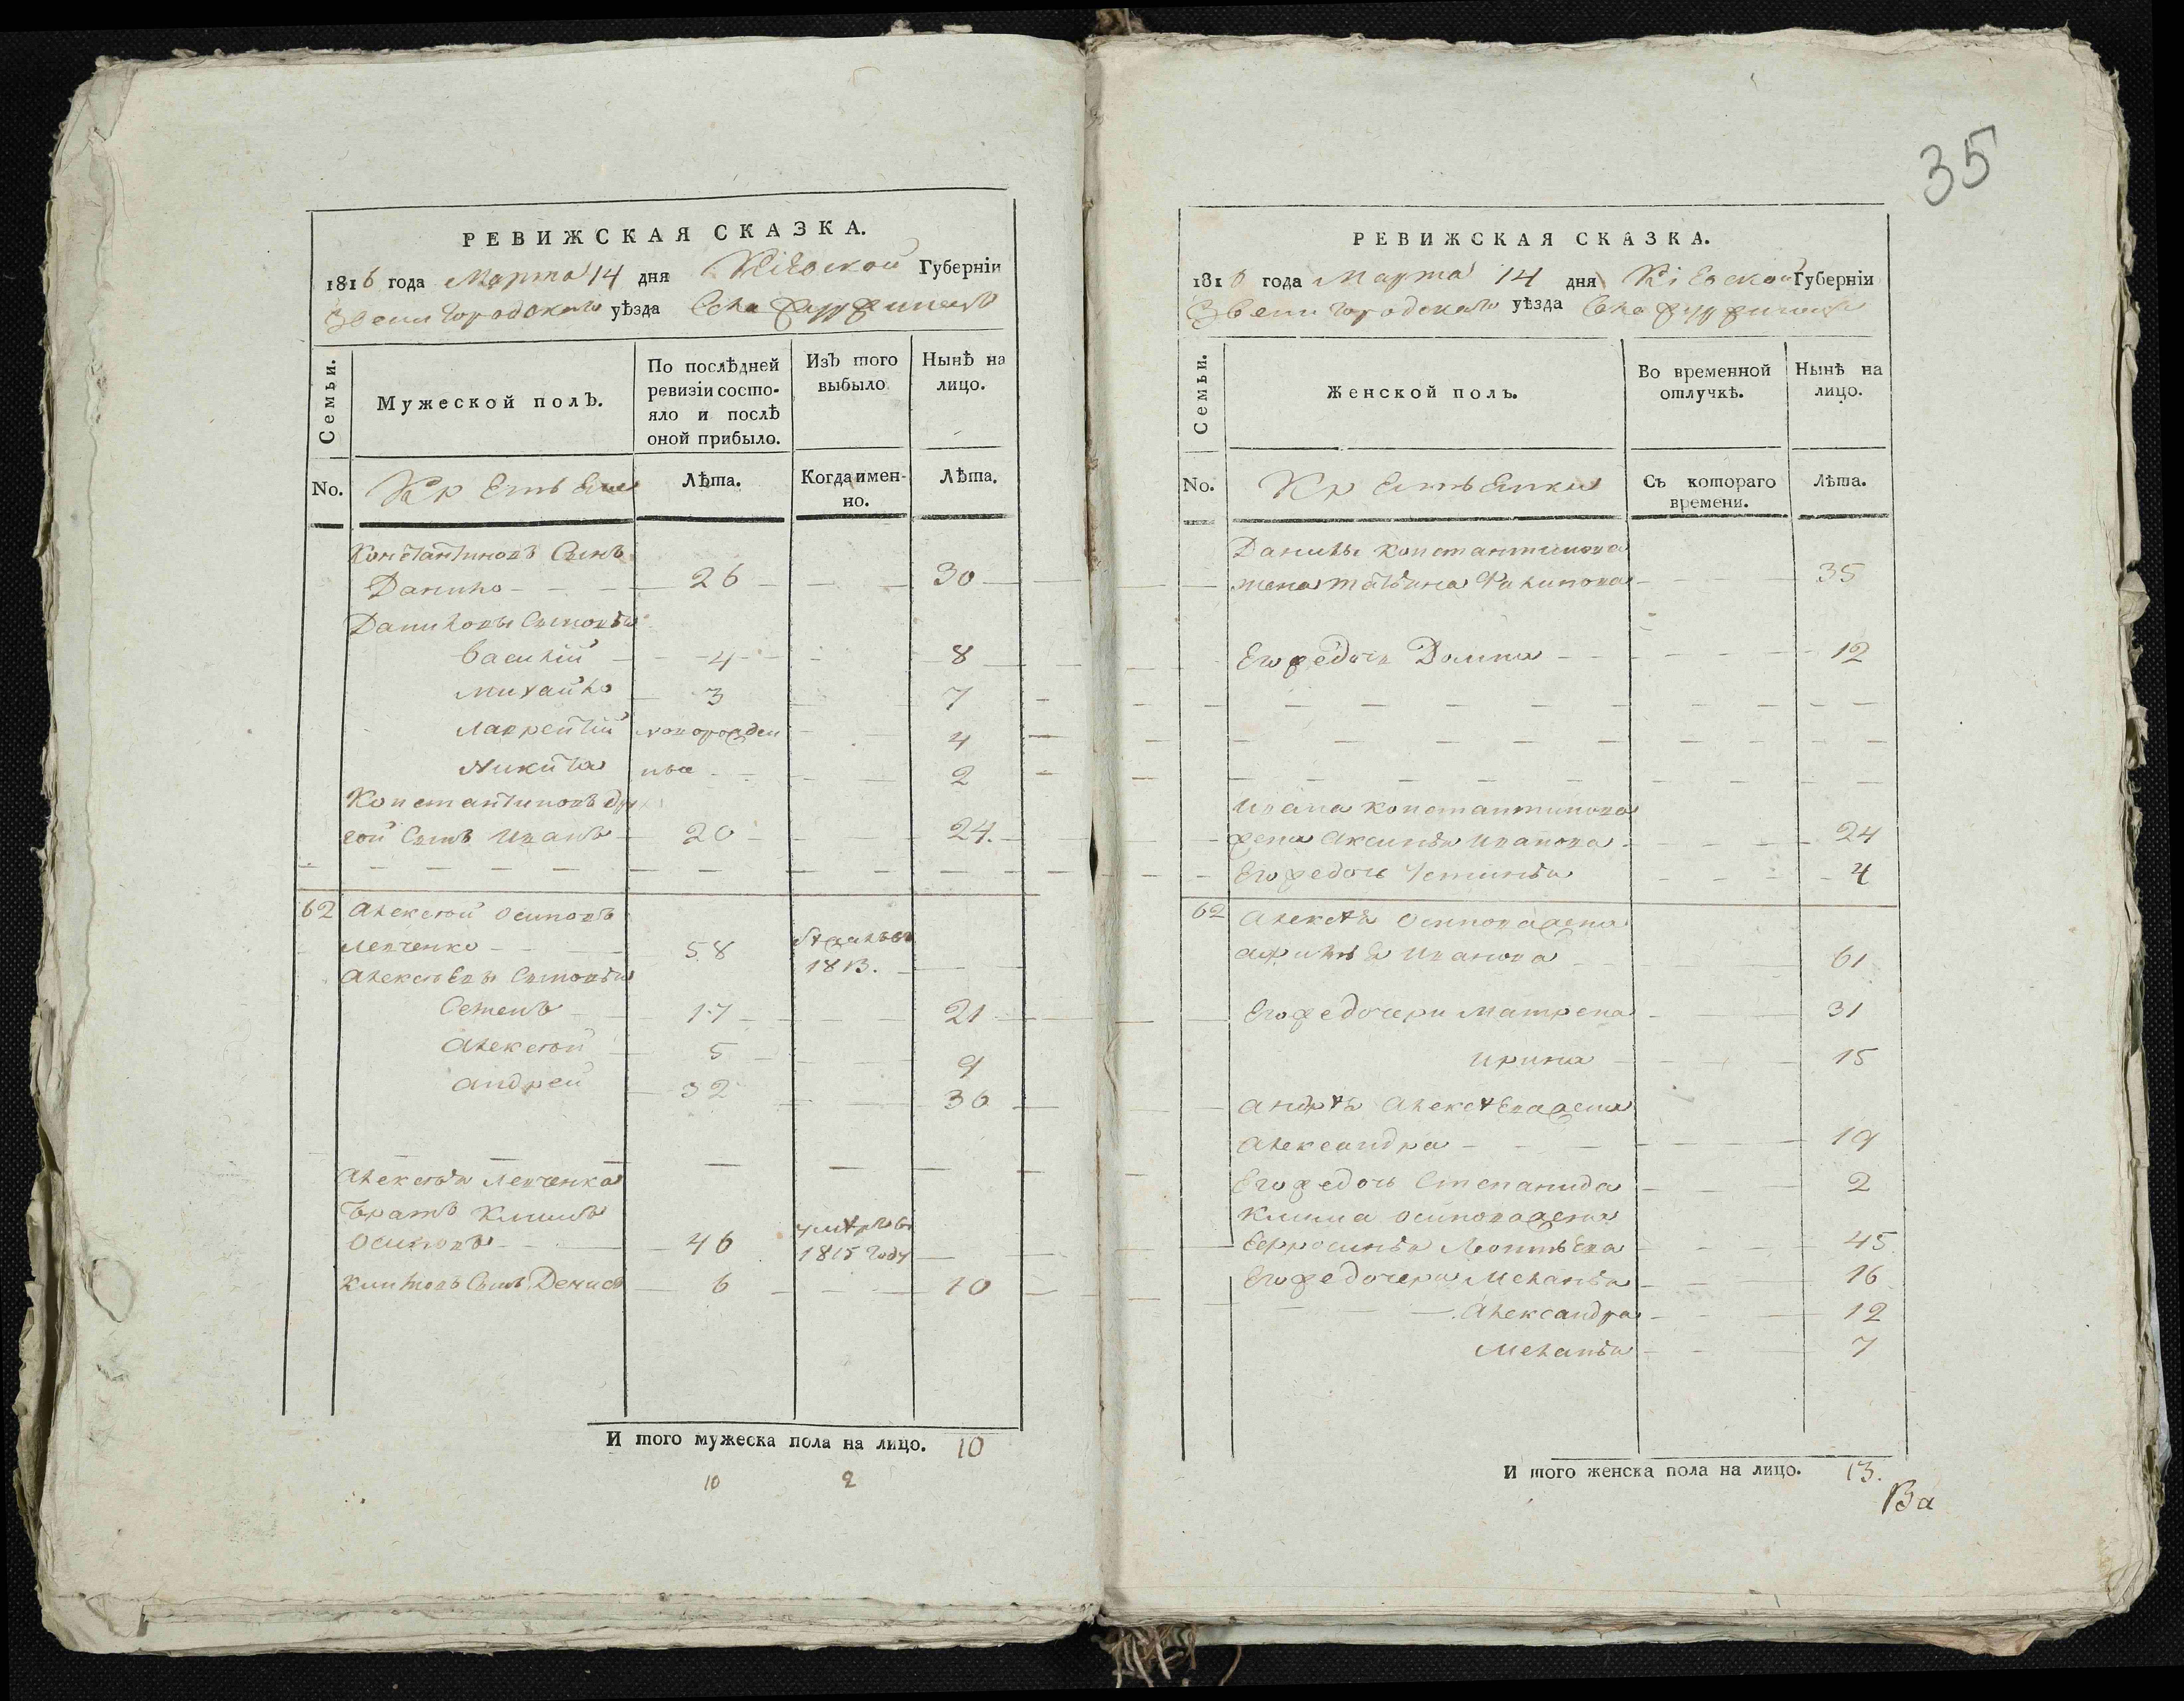 РЕВИЖСКАЯ СКАЗКА.
1816 года Марта 14 дня Кіевской Губерніи
Звенигородскаго уѣзда Села
Семьи.
Мужеской полъ.
По послѣдней ревизіи состо-
яло и послѣ
оной прибыло.
Изъ того
выбыло
Нынѣ на
лицо.
No.
Крестьяне
Лѣта.
Когда имен-
но.
Лѣта.
Константиновъ Сынъ
Данило 26 30
Даниловы Сыновья
Василій 4 8
Михайло 3 7
Лаврентій новорожден 4
Никита ные 2
Константиновъ дру
гой Сынъ Иванъ 20 24.
62 Алексѣй Осиповъ
Левченко 58 1813.
Алексѣевы Сыновья
Семенъ 17 21
Алексѣй 5 9
Андрей 32 36
Алексѣя Левченка
Братъ Климъ
Осиповъ 46 умѣръ въ
1815 году
Климовъ Сынъ Денисъ 6 10
И того мужеска пола на лицо. 10
10 2
35
РЕВИЖСКАЯ СКАЗКА.
1816 года Марта 14 дня Кіевской Губерніи
Звенигородскаго уѣзда Села
Семьи.
Женской полъ.
Во временной
отлучкѣ.
Нынѣ на
лицо.
No.
Крестьянки
Съ котораго
времени.
Лѣта.
Данилы Константинова
жена Татьяна Филипова 35
Его же дочь Домна 12
Ивана Константинова
жена Аксинья Иванова 24
Его же дочь Устинья 4
62 Алексѣя Осипова жена
Иванова 61
Его же дочери Матрена 31
Ирина 15
Андрѣя Алексѣева жена
Александра 19
Его же дочь Степанида 2
Клима Осипова жена
Ефросинья Леонтьева 45
Его же дочери Меланья 16
Александра 12
Меланья 7
И того женска пола на лицо. 13.
Ва